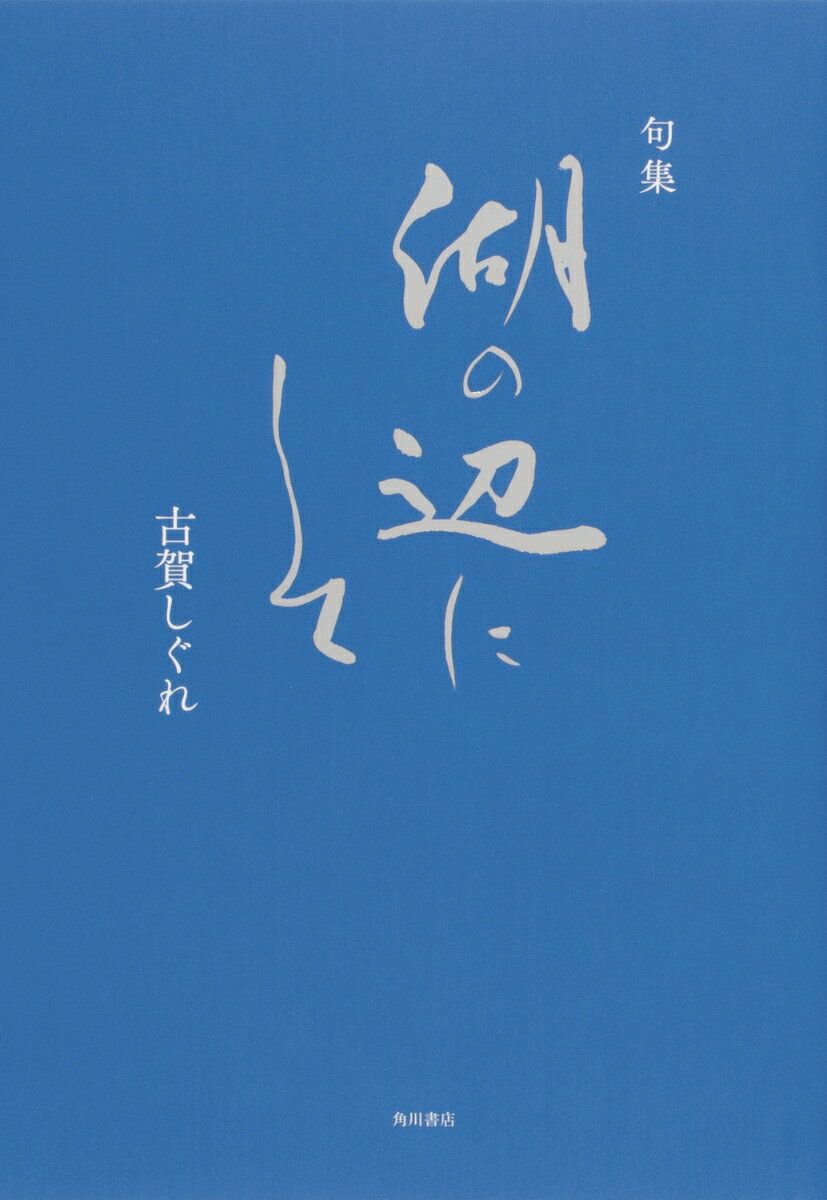 句集
湖の辺に
して
古賀しぐれ
角川書店